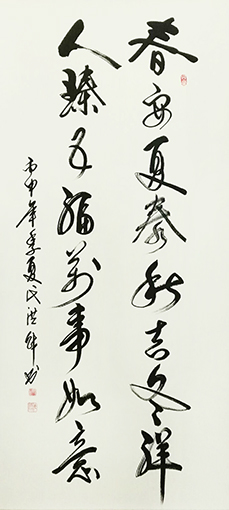 春安夏泰秋吉冬祥
人臻五福万事如意
丙申年季夏氏洪锋书